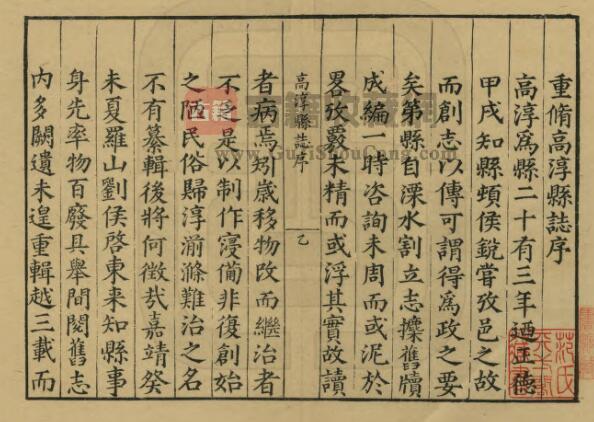 重脩高淳縣誌序
高淳爲縣二十有三年廼正德
甲戌知縣頓侯銳嘗攷邑之故
而創志以傳可謂得爲政之要
矣第縣自溧水割立志摭舊牘
成編一時咨詢未周而或泥於
畧攷覈未精而或浮其實故讀
高淳縣誌序
乙
者病焉矧歲移物改而繼治者
不乏是以制作寖備非復創始
之陋民俗歸淳湔滌難治之名
不有纂輯後將何徵哉嘉靖癸
未夏羅山劉侯啓東来知縣事
身先率物百廢具舉間閱舊志
内多闕遺未遑重輯越三載而
古籍
www.GuJiShouCang.com